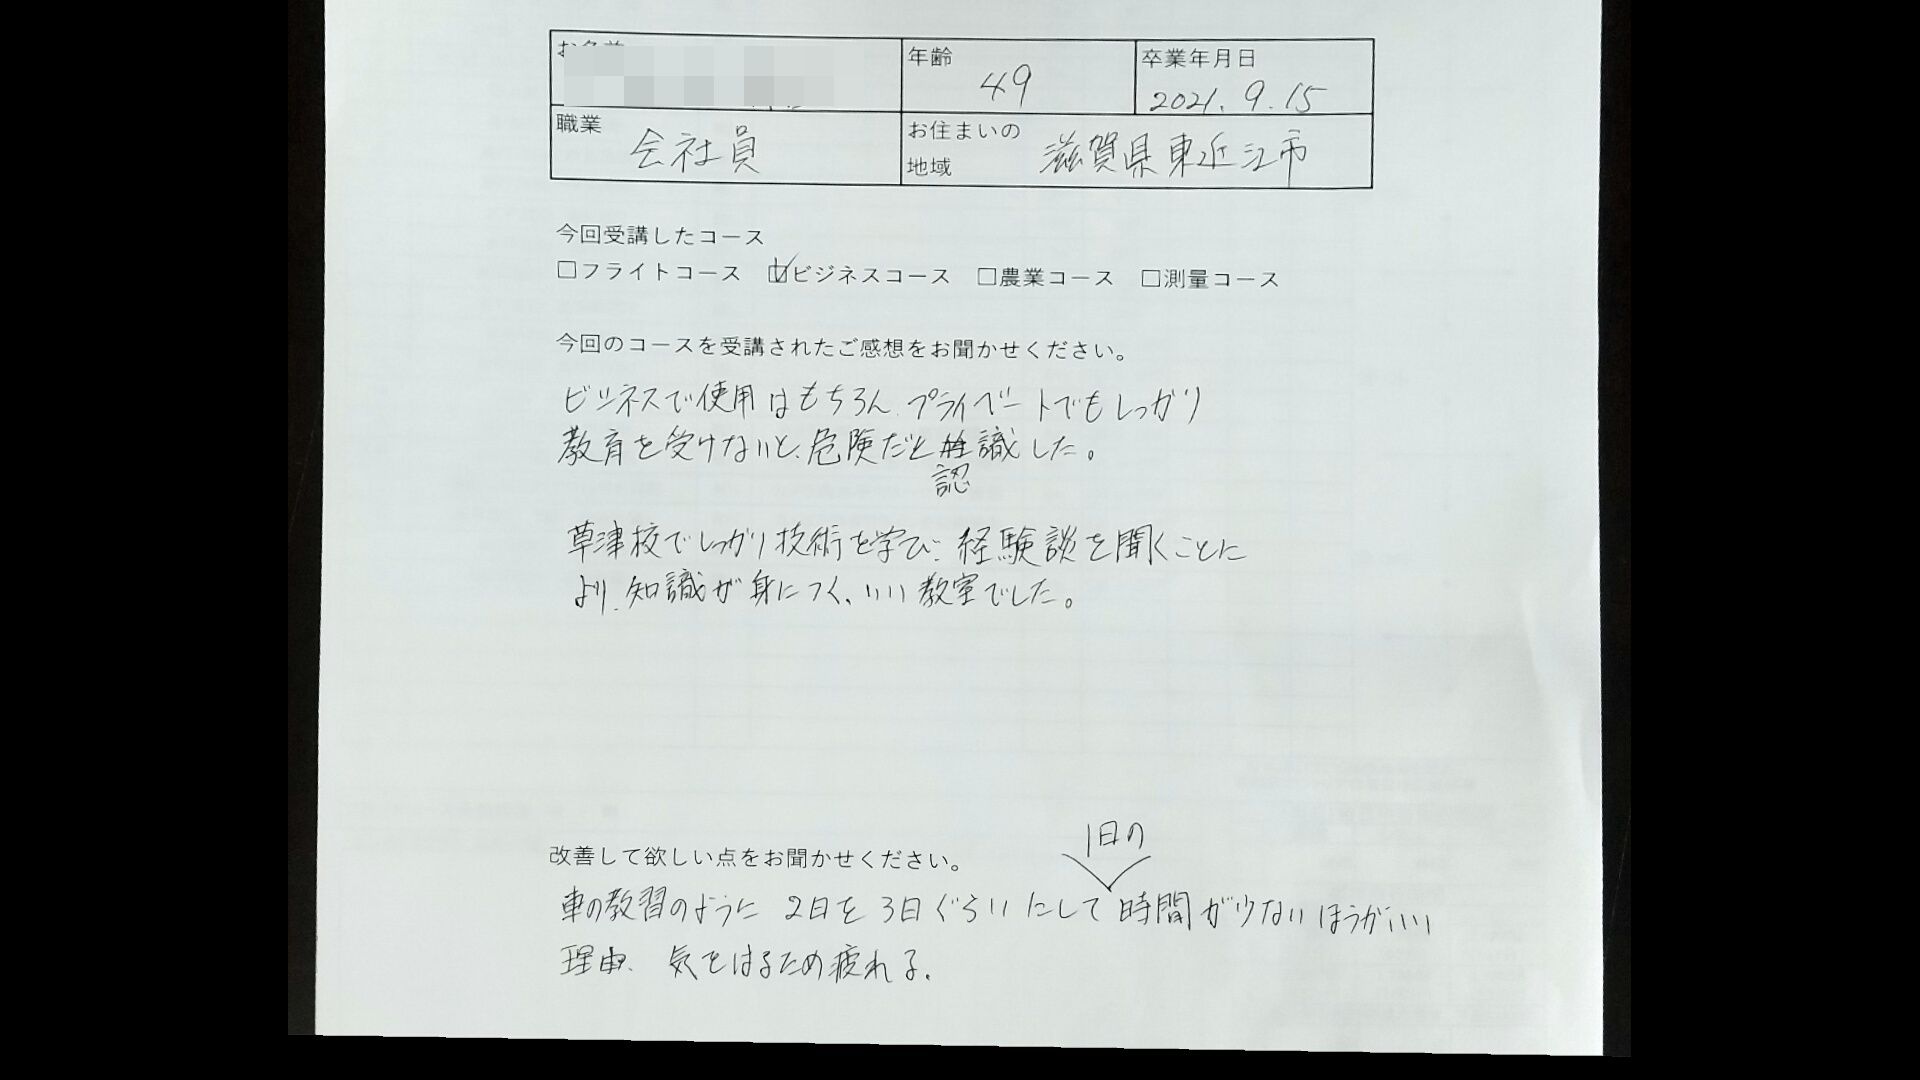 お名前
年齢
49
卒業年月日
2021.9.15
職業
会社員
お住まいの
地域
滋賀県東近江市
今回受講したコース
□フライトコース ☑ビジネスコース □農業コース □測量コース
今回のコースを受講されたご感想をお聞かせください。
ビジネスで使用はもちろん、プライベートでもしっかり
教育を受けないと、危険だと認識した。
草津校でしっかり技術を学び、経験談を聞くことに
より、知識が身につく、いい教室でした。
改善して欲しい点をお聞かせください。
車の教習のように2日を3日ぐらいにして1日の時間が少ないほうがいい
理由、気をはるため疲れる。